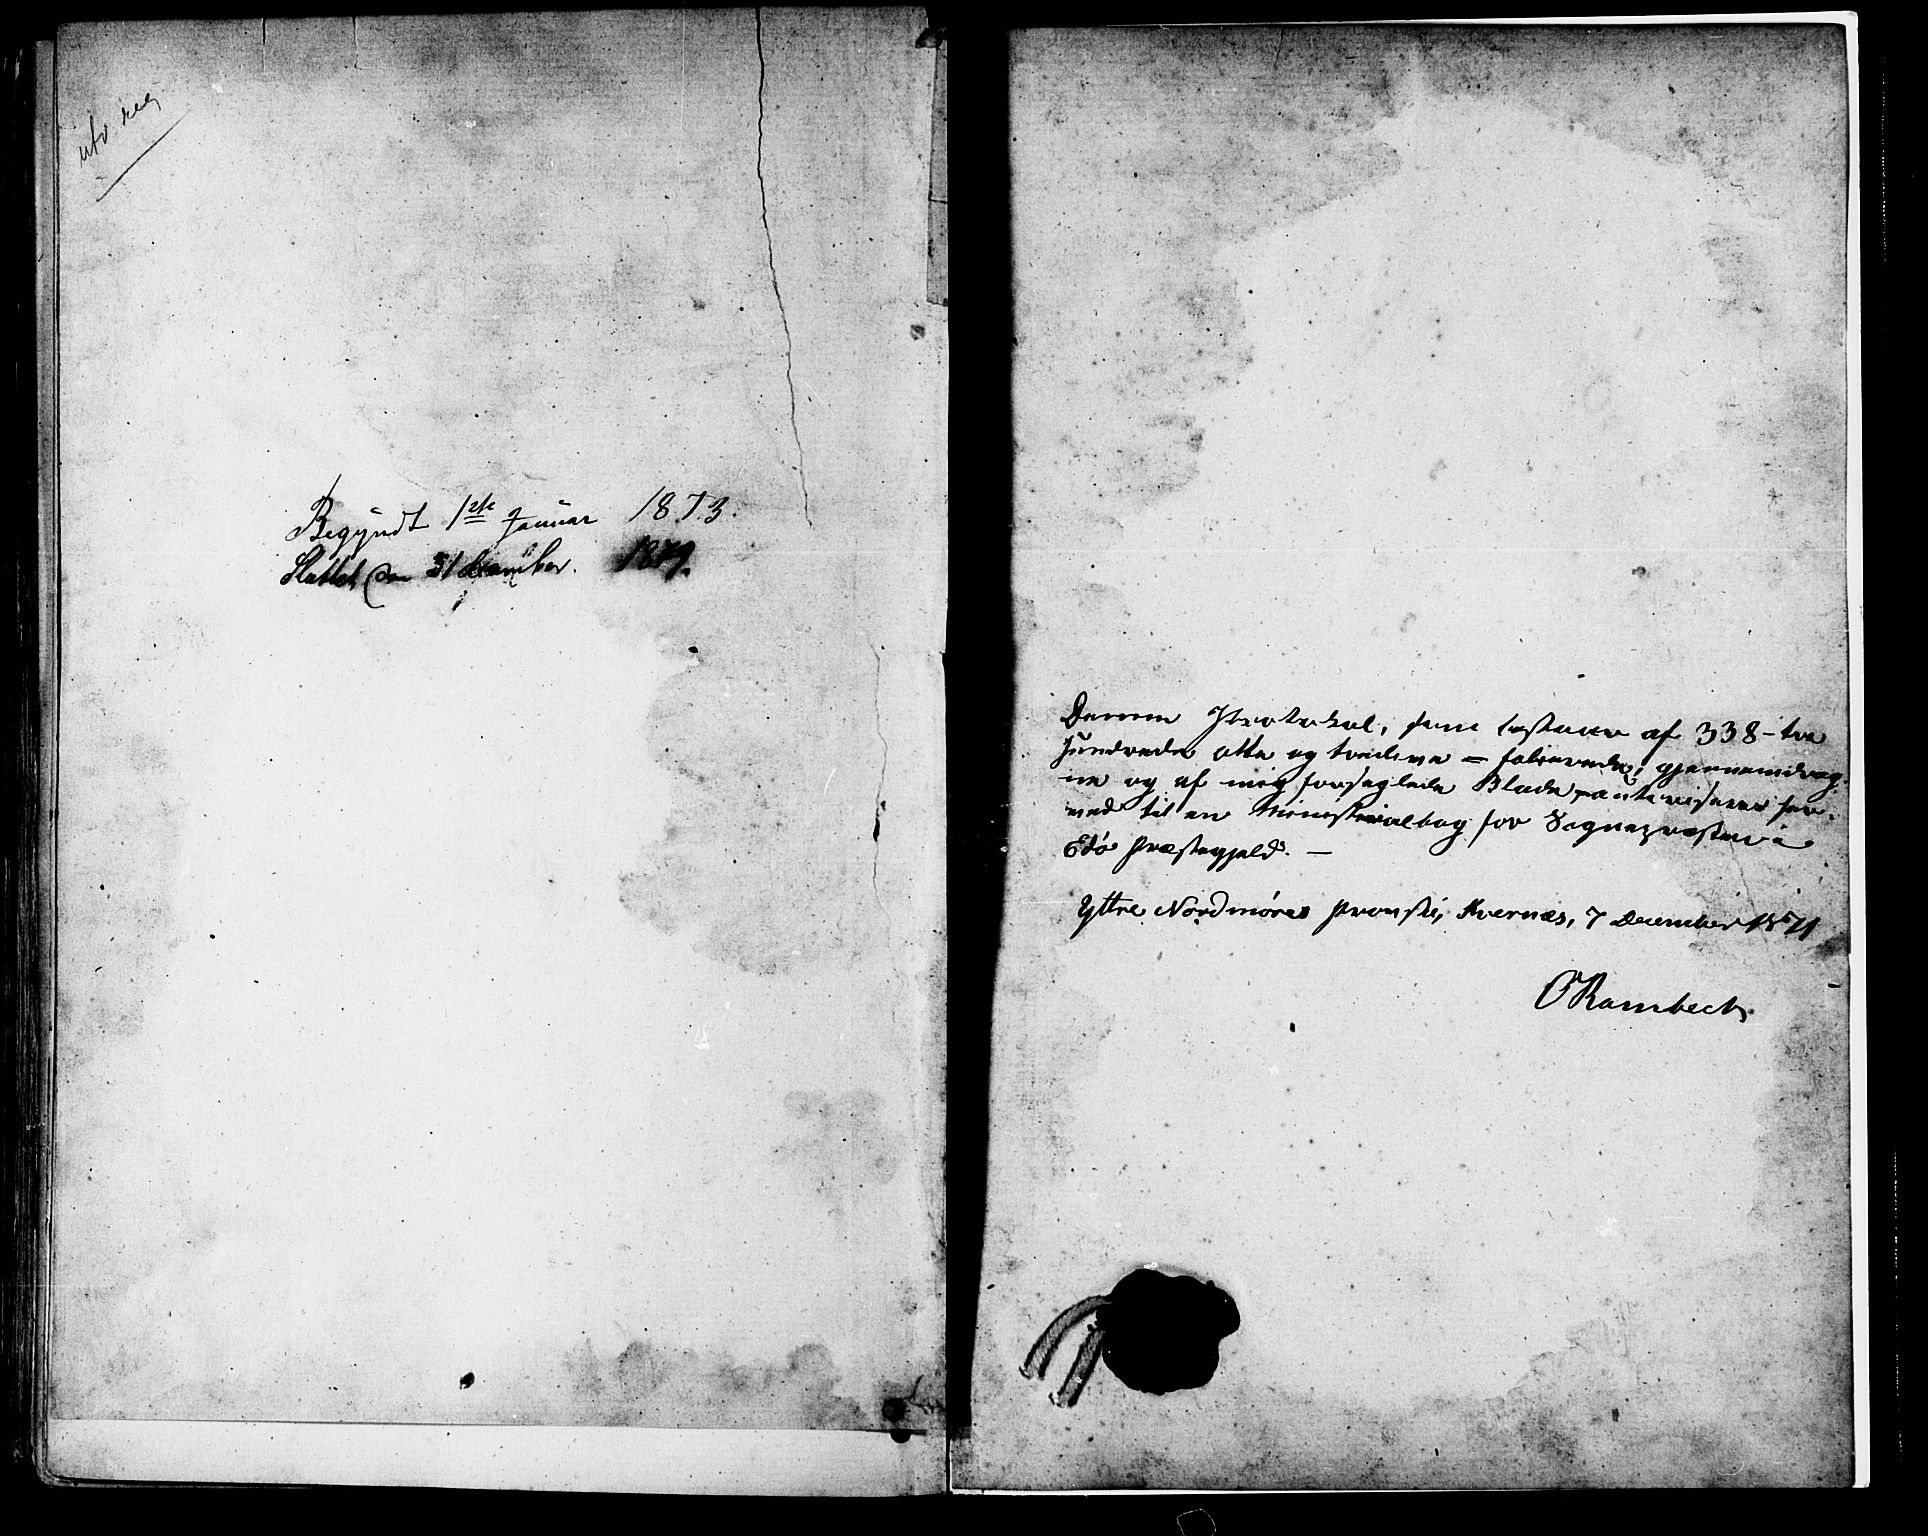 utv reg
Begyndt 1ste Januar 1873.
Sluttet den 31 December. 1879.
Denne Protokol, som bestaaer af 338 - tre
hundrede otte og tredive = folierede, gjennemdrag-
ne og af mig forseglede Blade, autoriseres her-
ved til en Ministerialbog for Sognepræsten i
Edø Præstegjeld. —
Yttre Nordmøres Provsti, Kvernæs, 7 December 1871
O Rambech